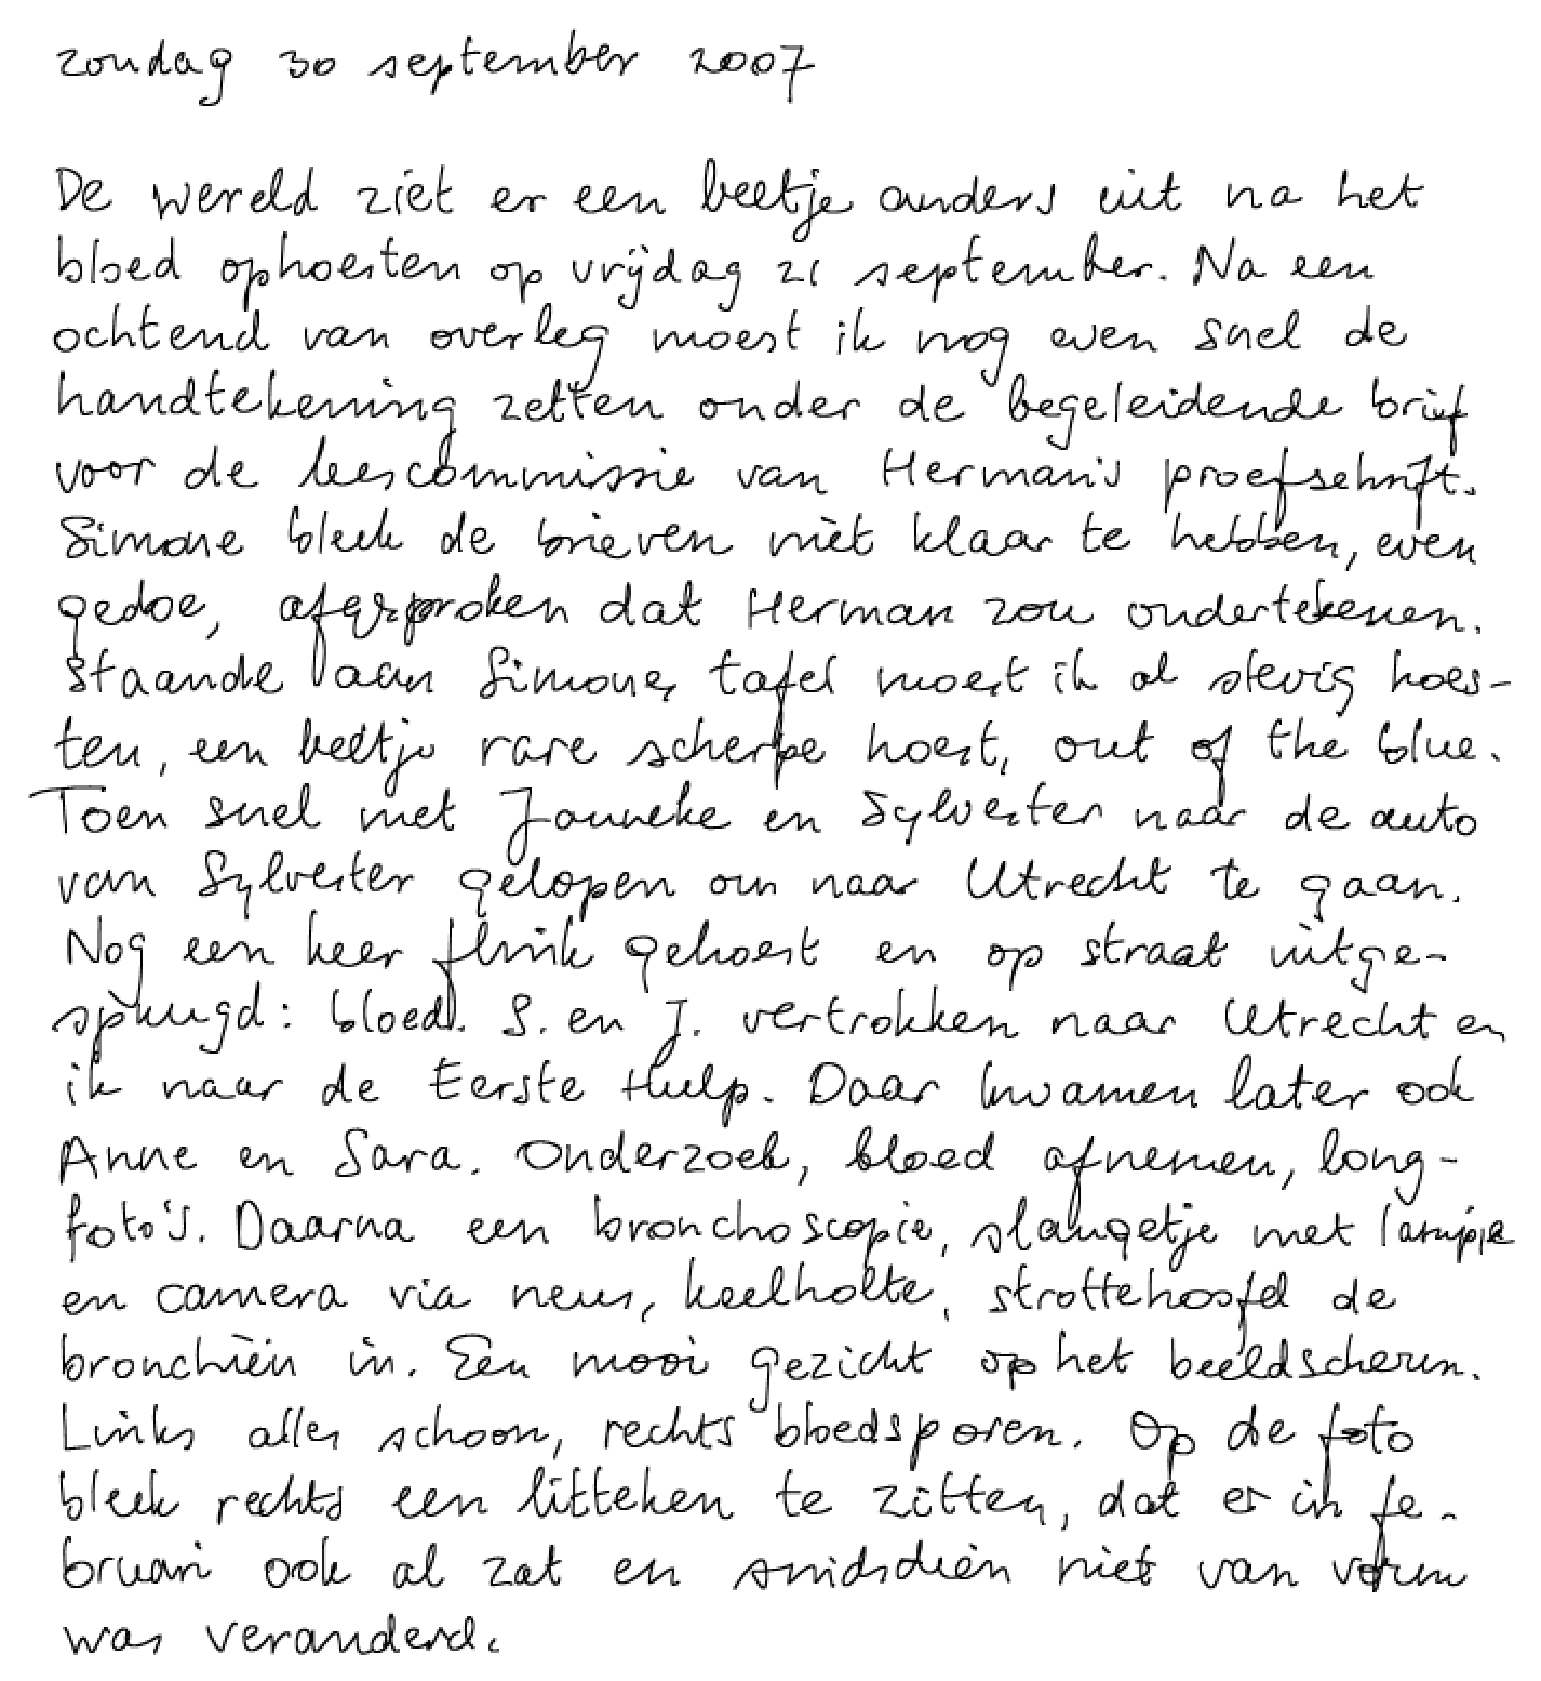 zondag 30 september 2007
De wereld ziet er een beetje anders uit na het
bloed ophoesten op vrijdag 21 september. Na een
ochtend van overleg moest ik nog even snel de
handtekening zetten onder de begeleidende brief
voor de leescommissie van Herman's proefschrift.
Simone bleek de brieven niet klaar te hebben, even
gedoe, afgesproken dat Herman zou ondertekenen.
Staande aan Simones tafel moest ik al stevig hoes-
ten, een beetje rare scherpe hoest, out of the blue.
Toen snel met Janneke en Sylvester naar de auto
van Sylvester gelopen om naar Utrecht te gaan.
Nog een keer flink gehoest en op straat uitge-
spuugd: bloed. S. en J. vertrokken naar Utrecht en
ik naar de Eerste Hulp. Daar kwamen later ook
Anne en Sara. Onderzoek, bloed afnemen, long-
foto's. Daarna een bronchoscopie, slangetje met lampje
en camera via neus, keelholte, strottehoofd de
bronchiën in. Een mooi gezicht op het beeldscherm.
Links alles schoon, rechts bloedsporen. Op de foto
bleek rechts een litteken te zitten, dat er in fe-
bruari ook al zat en sindsdien niet van vorm
was veranderd.